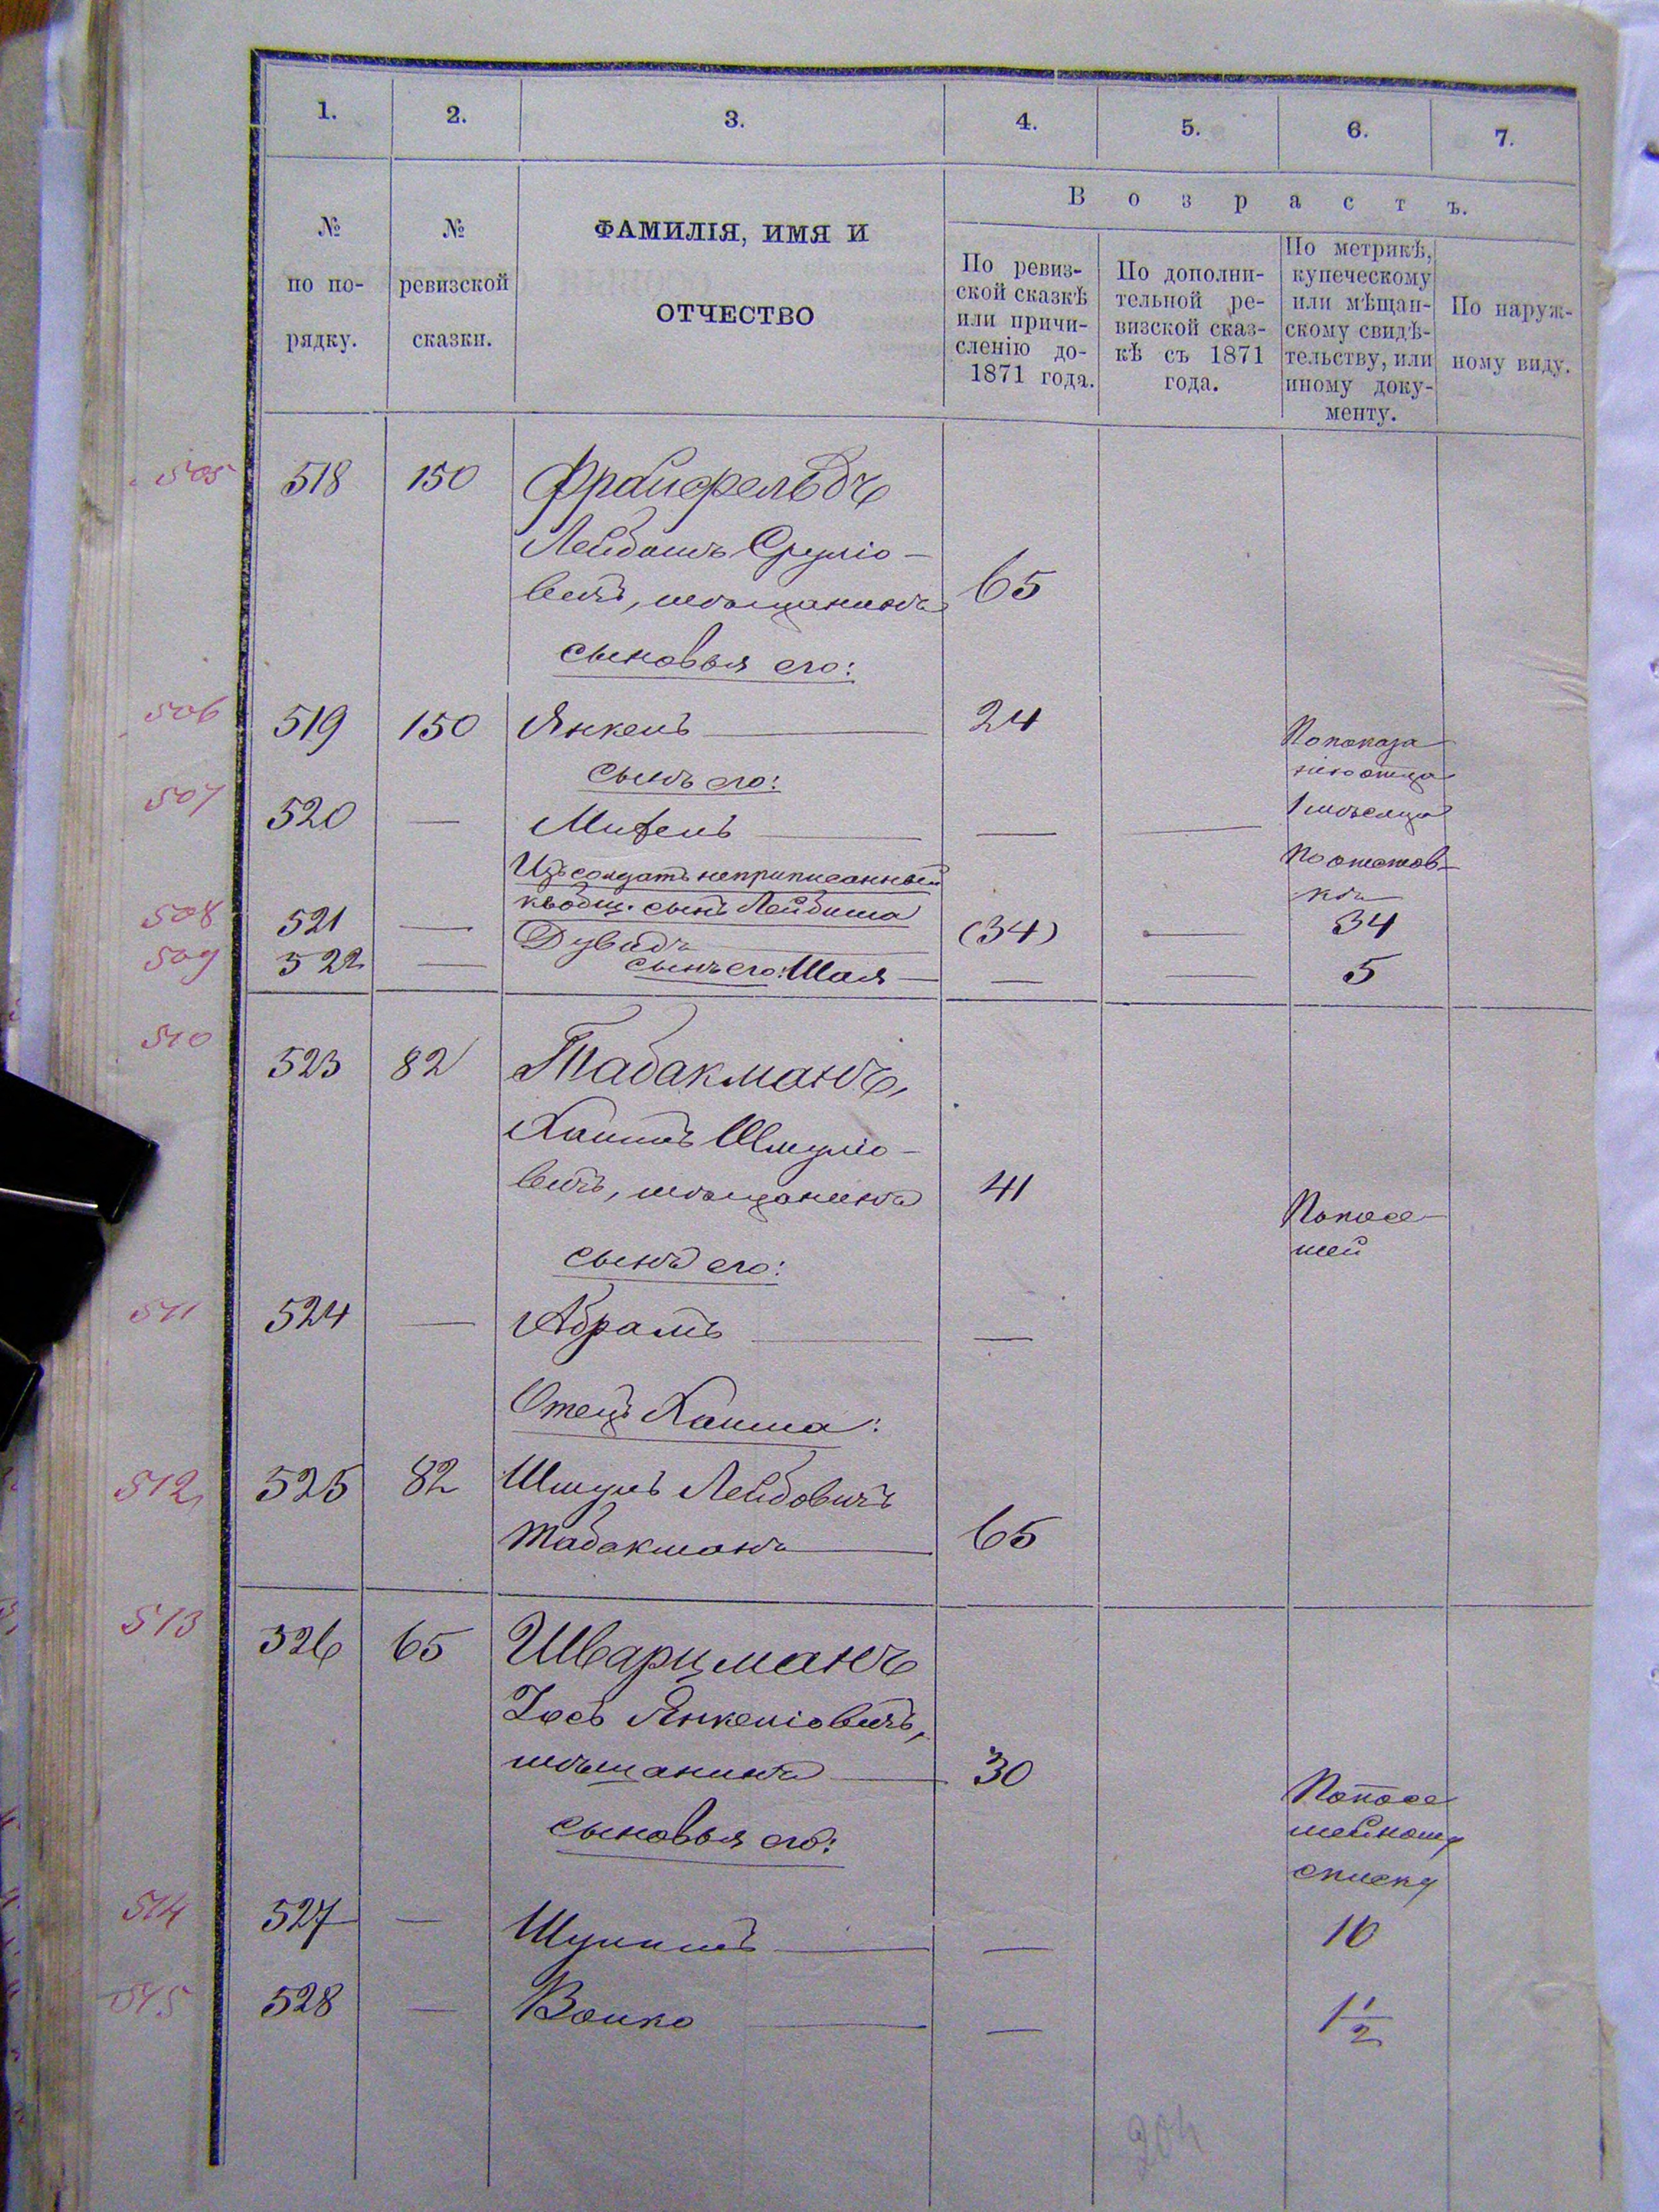 1. 2. 3. 4. 5. 6. 7.
№ по по-рядку.
№ ревизской сказки.
ФАМИЛІЯ, ИМЯ И
ОТЧЕСТВО
Возрастъ.
По ревиз-
ской сказкѣ
или причи-
сленію до-
1871 года.
По дополни-
тельной ре-
визской сказ-
кѣ съ 1871
года.
По метрикѣ,
купеческому
или мѣщан-
скому свидѣ-
тельству, или
иному доку-
менту.
По наруж-
ному виду.
505 518 150 Фрайфельдъ
Лейбишъ Сруліо-
вичъ, мѣщанинъ 65
сыновья его:
506 519 150 Янкель 24
По показа
нію отца
сынъ его:
1 мѣсяца
507 520 — Михель — —
Изъ солдатъ неприписанный
къ общ. сынъ Лейбиша
По отстав-
кѣ
508 521 — Дувидъ (34) — 34
509 522 — сынъ его: Шая — — 5
510 523 82 Табакманъ,
Хаимъ Шмуліо-
вичъ, мѣщанинъ 41
Попосе-
мей
сынъ его:
511 524 — Абрамъ —
Отецъ Хаима:
512 525 82 Шмуль Лейбовичъ
Табакманъ 65
513 526 65 Шварцманъ
Іосъ Янкеліовичъ,
мѣщанинъ 30
Попосе
мейному
списку
сыновья его:
514 527 — — 10
515 528 — Волко — 1 1/2
204